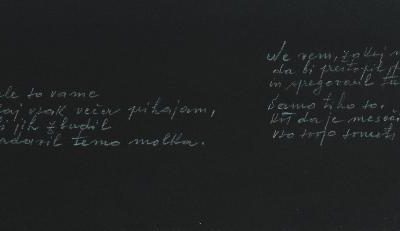 le so vame
aj vsak večer prihajam,
i jih zbudil
adaril temo molka.
Ne vem, zakaj
da bi prestopil
in spregovoril
Samo tiho so.
Kot da je
vso svojo